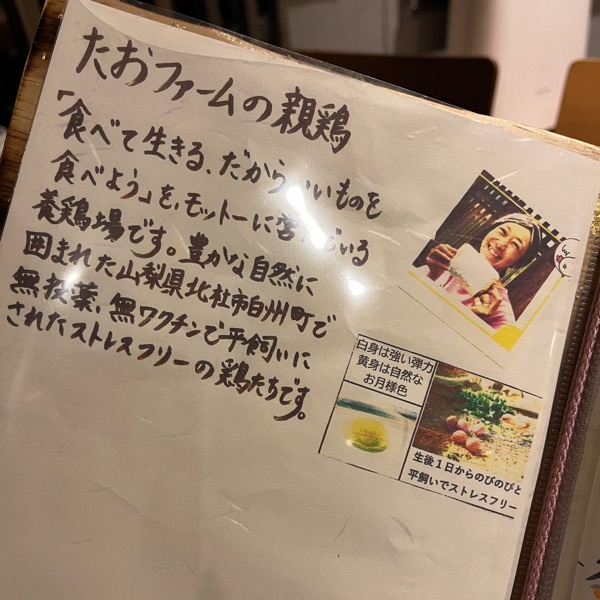 たおファームの親鶏
「食べて生きる、だからいいものを
食べよう」を、モットーに営んでいる
養鶏場です。豊かな自然に
囲まれた山梨県北杜市白州町で
無投薬、無ワクチンで平飼いに
されたストレスフリーの鶏たちです。
白身は強い弾力
黄身は自然な
お月様色
生後1日からのびのびと
平飼いでストレスフリー